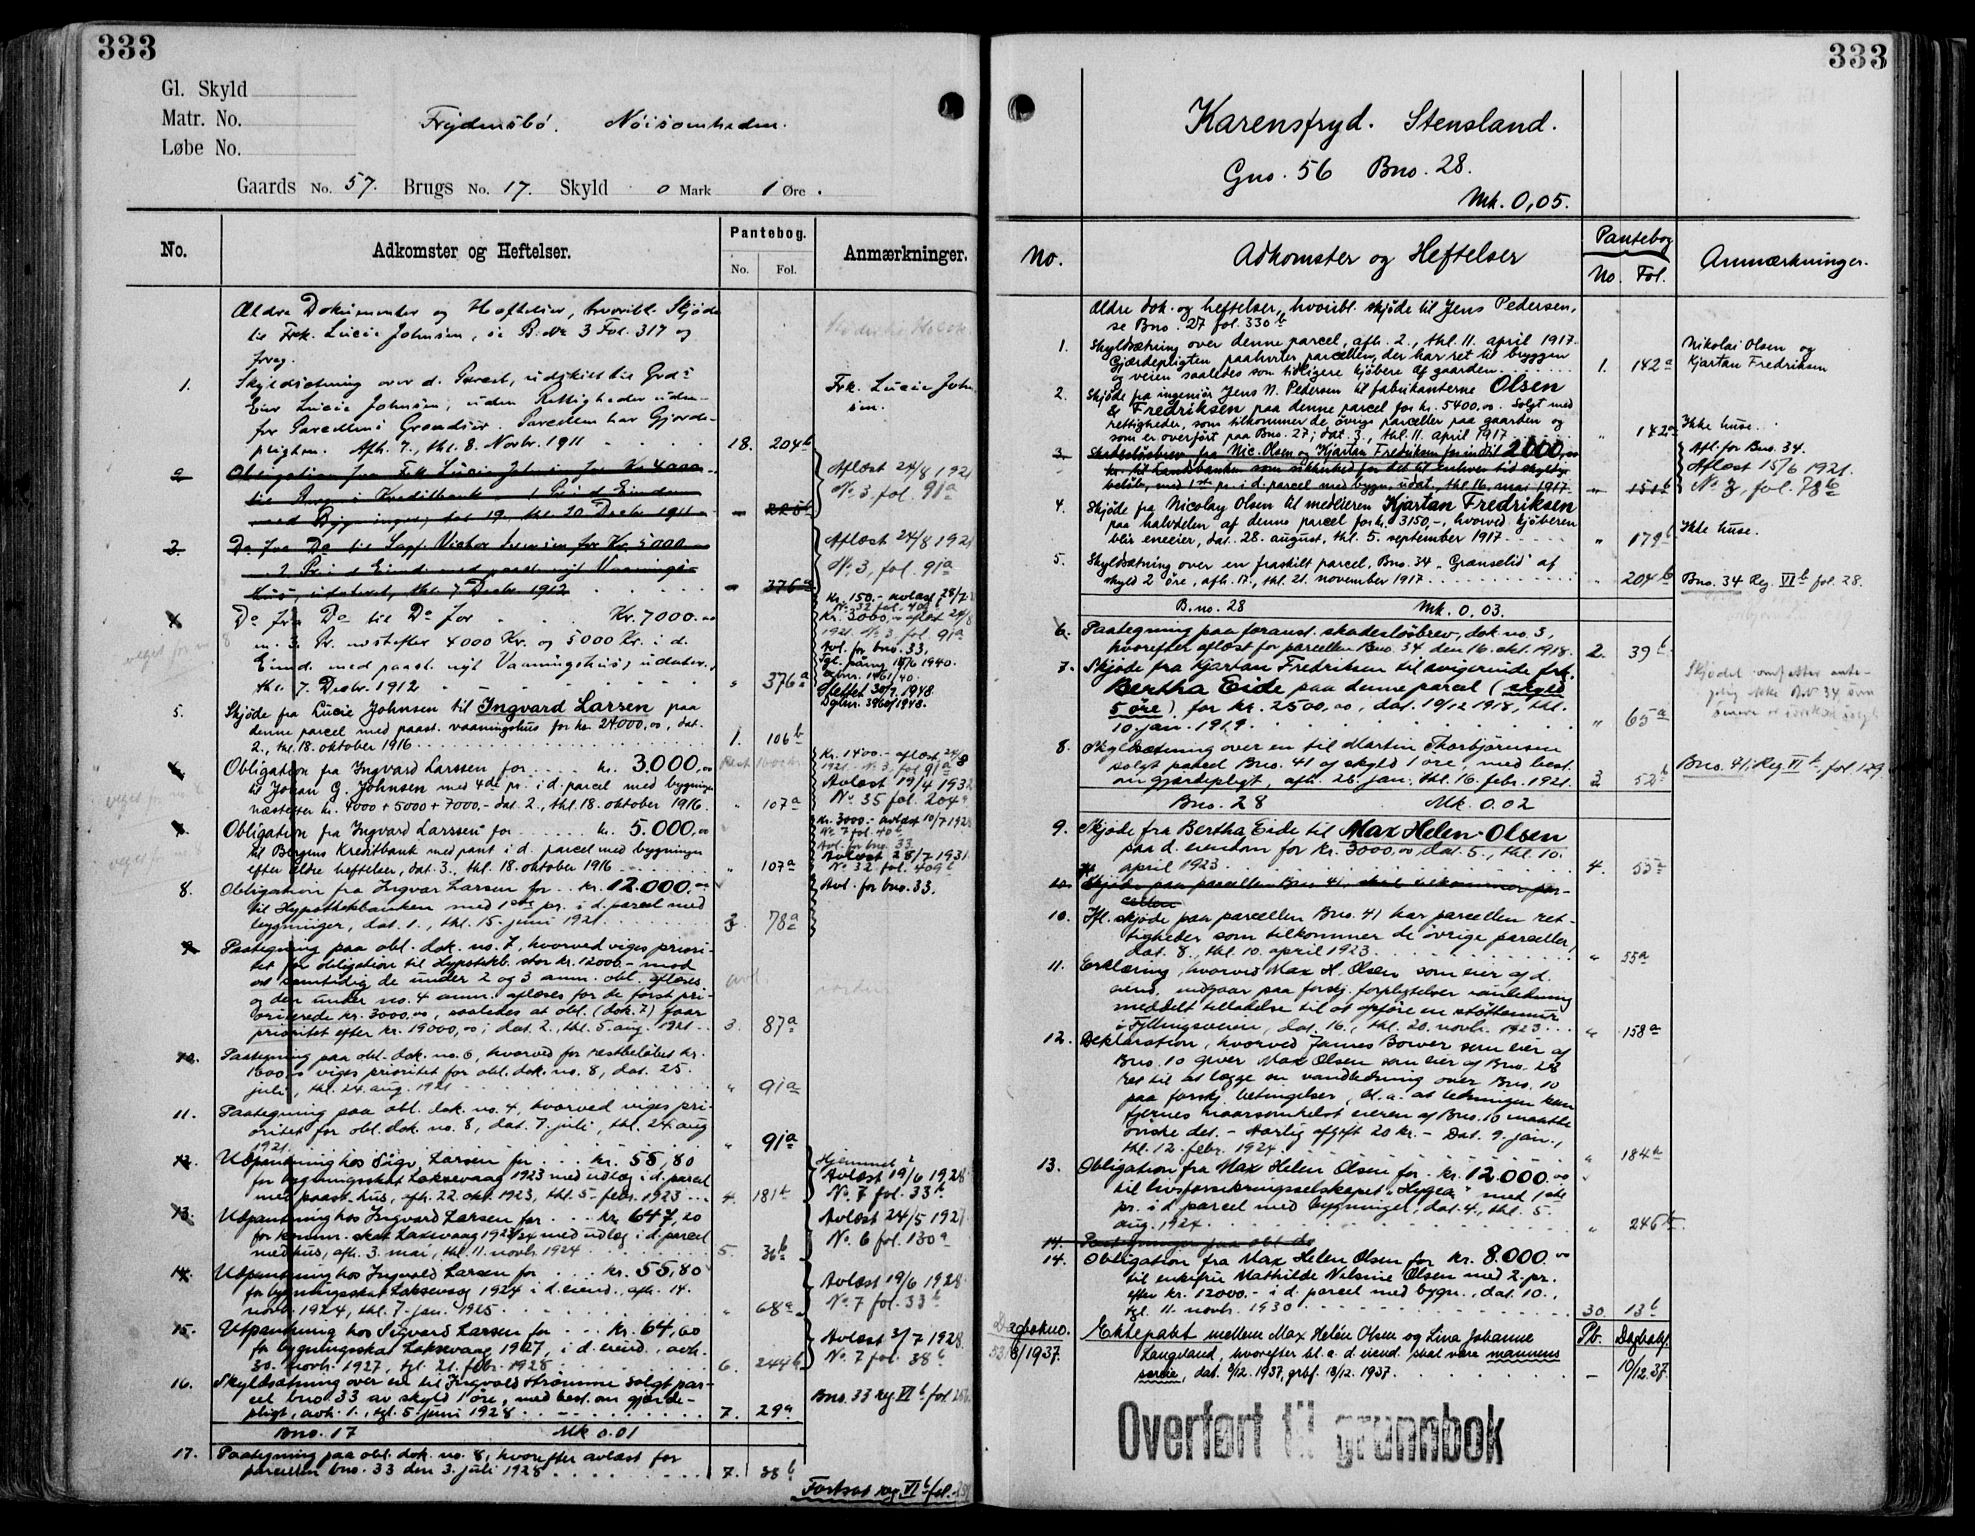 333
Gl. Skyld
Matr. No.
Løbe No.
Frydensbø. Nöisomheden.
Gaards No. 57. Brugs No. 17. Skyld 0 Mark 1 Øre.
No. Adkomster og Heftelser. Pantebog. No. Fol. Anmærkninger.
Ældre Dokumenter og Heftelser, hvoriblt. Skjøde
til Frk. Lucie Johnsen, se B. No 3 Fol. 317 og
foreg.
1. Skyldsætning over d. Parcel, udskilt til
Eier Lucie Johnsen, uden Rettigheder uden-
for Parcellens Grændser. Parcellen har Gjærde-
pligten. Afh. 7., thl. 8. Novbr. 1911 18. 204b
Frk. Lucie John-
sen.
2. Obligation fra Frk. Lucie Johnsen for Kr. 4000
til Berg. Kreditbank 1 Pr. i d. Eiendom
med Bygninger, dat. 19., thl. 20 Decbr 1911 225b
Aflæst 24/8 1921
No. 3. fol. 91a
3. Do fra Do til Sagf. Victor for Kr. 5000
2. Pr. i d. Eiend. med paast. nyt Vaanings-
hus, udatert, thl. 7 Decbr 1912 376a
Aflæst 24/8 1921
No. 3, fol. 91a
4. Do fra Do til Do for Kr. 7000.00
m. 3. Pr. næstefter 4000 Kr. og 5000 Kr. i d.
Eiend. med paast. nyt Vaaningshus, udater.,
thl. 7. Decbr. 1912 " 376a
Kr. 150.- avlæst 28/7
No. 32 fol. 409
Kr. 3000.- aflæst 24/8
1921. No. 3 fol. 91a
Avl. for bno. 33.
Tgl. påny 18/6 1940.
Dgbnr. 1461/40
Slettet 30/7. 1948.
Dgbnr. 3960/1948.
5. Skjøde fra Lucie Johnsen til Ingvard Larsen paa
denne parcel med paast. vaaningshus for kr. 24000,00, dat.
2., thl. 18. oktober 1916 1. 106b
6. Obligation fra Ingvard Larssen for kr. 3.000,00
til Johan G. Johnsen med 4de pr. i d. parcel med bygninger
næstefter kr. 4000 + 5000 + 7000,- dat. 2., thl. 18. oktober 1916. " 107a
Kr. 1400.- aflæst 24/8
1921. No. 3, fol 91a
Avlæst 19/4 1932
No. 35 fol. 204a
7. Obligation fra Ingvard Larssen for kr. 5.000,00
til Bergens Kreditbank med pant i d. parcel med bygninger
efter ældre heftelser, dat. 3., thl. 18. oktober 1916 " 107a
Kr. 3000.- avlæst 10/7 1928
No. 7 fol. 40b
Avl. for bno. 33
Avlæst 28/7 1931
No. 32 fol. 409b
8. Obligation fra Ingvar Larsen for kr. 12.000,00
til Hypothekbanken med 1ste pr. i d. parcel med
bygninger, dat. 1., thl. 15. juni 1921 3 78a
Avl. for bno. 33.
9. Paategning paa obl. dok. no. 7, hvorved viges priori-
tet for obligation til Hypothkb. stor kr. 12000.- mod
at samtidig de under 2 og 3 anm. obl. aflæses
og den under no. 4 anm. aflæses for de først pri-
oriterede kr. 3000,00, saaledes at obl. (dok. 7) faar
prioritet efter kr. 19000,00; dat. 2., thl. 5. aug. 1921 3. 87a
10. Paategning paa obl. dok. no. 6, hvorved for restbeløbet kr.
1600,00 viges prioritet for obl. dok. no. 8, dat. 25.
juli, thl. 24. aug. 1921 " 91a
11. Paategning paa obl. dok. no. 4, hvorved viges pri-
oritet for obl. dok. no. 8, dat. 7. juli, thl. 24 aug
1921. " 91a
12. Utpantning hos Ingv. Larsen for kr. 55,80
for bygningsskat Laksevaag 1923 med udlæg i d. parcel
med paast. hus, afh. 22. okt. 1923, thl. 5. febr. 1923 4. 181b
Hjemmel?
Avlæst 19/6 1928.
No. 7 fol. 33b.
13. Utpantning hos Ingvard Larsen for kr. 647,20
for komm. skat Laxevaag 1923/24 med udlæg i d. parcel
med hus, afh. 3. mai, thl. 11. novbr. 1924 5. 36b
Avlæst 24/5 1927.
No. 6 fol. 130a
14. Utpantning hos Ingvald Larsen for kr. 55,80
for bygningsskat Laksevaag 1924 i d. eiend., afh. 14.
novbr. 1924, thl. 7. jan. 1925 " 68a
Avlæst 19/6 1928.
No. 7 fol. 33b
15. Utpantning hos Sigvard Larsen for kr. 64,60
for bygningsskat Laksevaag 1927, i d. eiend., avh.
30. novbr. 1927, tgl. 21. febr. 1928 6. 244b
Avlæst 3/7 1928.
No. 7 fol. 38b
16. Skyldsætning over en til Ingvald Strømme solgt par-
cel bno 33 av skyld 1 øre, med best. om gjærde-
pligt, avh. 1., tgl. 5. juni 1928 7. 29a
Bno. 33 Reg. VIb fol.
Bno. 17 Mk 0.01
17. Paategning paa obl. dok. no. 8, hvorefter avlæst for
parcellen bno. 33 den 3. juli 1928 7. 38b
Fortsat reg VIb fol.
333
Karensfryd. Stensland.
Gno. 56 Bno. 28.
Mk. 0,05.
No. Adkomster og Heftelser Pantebog No. Fol. Anmærkninger.
Ældre dok. og heftelser, hvoribl. skjøde til Jens Pedersen,
se Bno. 27 fol. 330b
1. Skyldsætning over denne parcel, afh. 2., thl. 11. april 1917.
Gjærdepligten paahviler parcellen, der har ret til bryggen
og veien saaledes som tidligere kjøbere af gaarden 1. 142a
Nikolai Olsen og
Kjartan Fredriksen
2. Skjøde fra ingeniør Jens N. Pedersen til fabrikanterne Olsen
& Fredriksen paa denne parcel for kr. 5400,00. Solgt med
rettigheder, som tilkommer de øvrige parceller paa gaarden og
som er overført paa Bno. 27; dat. 3., thl. 11. april 1917 " 142a
Ikke huse.
3. Skadesløsbrev fra Nic. Olsen og Kjartan Fredriksen for indtil 2000,00
kr. til Landsbanken som sikkerhed for det til enhver tid skyldige
beløb, med 1ste pr. i d. parcel med bygn., udat., thl. 16. mai 1917 " 151b
Afl. for Bno. 34.
Aflæst 15/6 1921.
No 3, fol. 78b
4. Skjøde fra Nicolay Olsen til medeieren Kjartan Fredriksen
paa halvdelen af denne parcel for kr. 3150,-, hvorved kjøberen
blir eneeier, dat. 28. august, thl. 5. september 1917 " 179b
Ikke huse.
5. Skyldsætning over en fraskilt parcel, Bno. 34 "Grænselid" af
skyld 2 øre, afh. 17., thl. 21. november 1917 " 204b
Bno. 34 Reg. VIb fol. 28.
B.no. 28 Mk. 0.03.
6. Paategning paa foranst. skadesløsbrev, dok. no. 3,
hvorefter aflæst for parcellen Bno. 34 den 16. okt. 1918. 2. 39b
7. Skjøde fra Kjartan Fredriksen til svigerinde frk.
Bertha Eide paa denne parcel (skyld
5 øre) for kr. 2500,00, dat. 19/12 1918, thl.
10 jan. 1919. " 65a
8. Skyldsætning over en til Martin Thorbjørnsen
solgt parcel Bno. 41 af skyld 1 øre, med best.
om gjærdepligt, afh. 26. jan., thl. 16. febr. 1921. 3 52b
Bno. 41, Reg. VIb, fol 129
Bno. 28 Mk. 0.02
9. Skjøde fra Bertha Eide til Max Helen-Olsen
paa d. eiendom for kr. 3000,00, dat. 5., thl. 10.
april 1923. 4. 55a
10. Skjøde paa parcellen Bno 41, skal tilkommer par-
cellen
10. Ifl. skjøde paa parcellen Bno. 41 har parcellen ret-
tigheder som tilkommer de øvrige parceller,
dat. 8., thl. 10. april 1923. " 55a
11. Erklæring, hvorved Max H. Olsen som eier af d.
eiend. indgaar paa forskj. forpligtelser i anledning
meddelt tilladelse til at opføre en støttemur
i Fyllingsveien, dat. 16., thl. 20. novbr. 1923 " 158a
12. Deklaration, hvorved James Bower som eier af
Bno. 10 giver Max Olsen som eier af Bno. 28
ret til at lægge en vandledning over Bno. 10
paa forskj. betingelser, bl. a. at ledningen kan
fjernes naarsomhelst eieren af Bno. 10 maatte
ønske det. - Aarlig afgift 20 kr. - Dat. 9. jan.,
thl. 12. febr. 1924. " 184a
13. Obligation fra Max Helen Olsen for kr. 12.000.00
til livsforsikringsselskapet "Hygea" med 1ste
pr. i d. parcel med bygninger, dat. 4., thl. 5.
aug. 1924. " 246b
14. Paategninger paa obl. do
14. Obligation fra Max Helen Olsen for kr. 8.000.00
til enkefru Mathilde Nilsine Olsen med 2. pr.
efter kr. 12000.- i d. parcel med bygn., dat. 10.,
tgl. 11. novbr. 1930 30 13b
Dagbokno. Ektepakt mellem Max Helén Olsen og Lina Johanne Pb. Dagbokf.
/1937. Langeland, hvorefter bl. a. d. eiend. skal være mannens
særeie, dat. 8/12. 1937, grbf. 13/12. 1937. - 10/12.37.
Overført til grunnbok